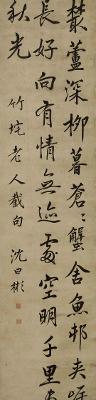 叢蘆深柳暮蒼〻蟹舍魚邨夾岸
長好向有情無迹處空明千里
秋光
竹垞老人截句 沈日彬